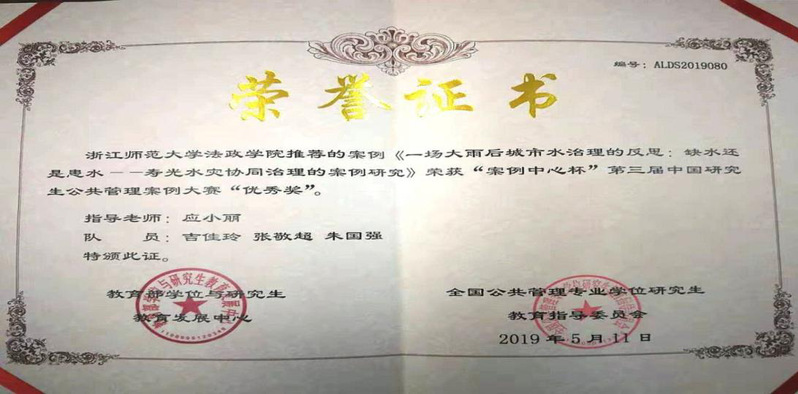 编号：ALDS2019080
荣誉证书
浙江师范大学法政学院推荐的案例《一场大雨后城市水治理的反思：缺水还
是患水——寿光水灾协同治理的案例研究》荣获“案例中心杯”第三届中国研究
生公共管理案例大赛“优秀奖”。
指导老师：应小丽
队 员：吉佳玲 张敬超 朱国强
特颁此证。
教育部学位与研究生
教育发展中心
全国公共管理专业学位研究生
教育指导委员会
2019年5月11日